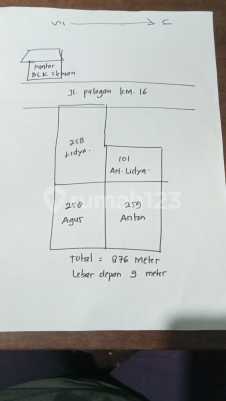 Kantor
BLK Sleman
Jl. palagan km. 16
258
Lidya.
101
An. Lidya
258
Agus
259
Anton
rumah123
Total = 876 Meter
Lebar depan 9 meter